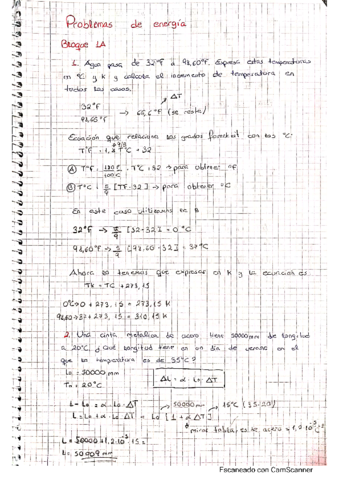 Problemas de energía
Bloque 1A
1. Agua pasa de 32°F a 98,60°F. Expresa estas temperaturas
en °C y K y calcula el incremento de temperatura en
todos los casos.
32°F ΔT
98,60°F → 66,6°F (se resta)
Ecuación que relaciona los grados farenheit con los °C:
T°F = 1,8 T°C + 32
Ⓐ T°F: 180F/100C · T°C + 32 → para obtener °F
Ⓑ T°C: 5/9 [TF - 32] → para obtener °C
En este caso utilizamos la B
32°F → 5/9 [32-32] = 0°C
98,60°F → 5/9 [98.60 - 32] = 37°C
Ahora lo tenemos que expresar en K y la ecuación es
TK = TC + 273,15
0°C = 0 + 273,15 = 273,15 K
37 + 273,15 = 310,15 K
2. Una cinta metálica de acero tiene 50000mm de longitud
a 20°C ¿Qué longitud tiene en un día de verano en el
que la temperatura es de 35°C?
L₀ = 50000mm
T₀ = 20°C
ΔL = α · L₀ · ΔT
L - L₀ = α · L₀ · ΔT 50000mm 15°C (35-20)
L = L₀ + L₀ · α · ΔT = L₀ [1 + α ΔT]
mirar tabla, es de acero
L = 50009 mm
Escaneado con CamScanner